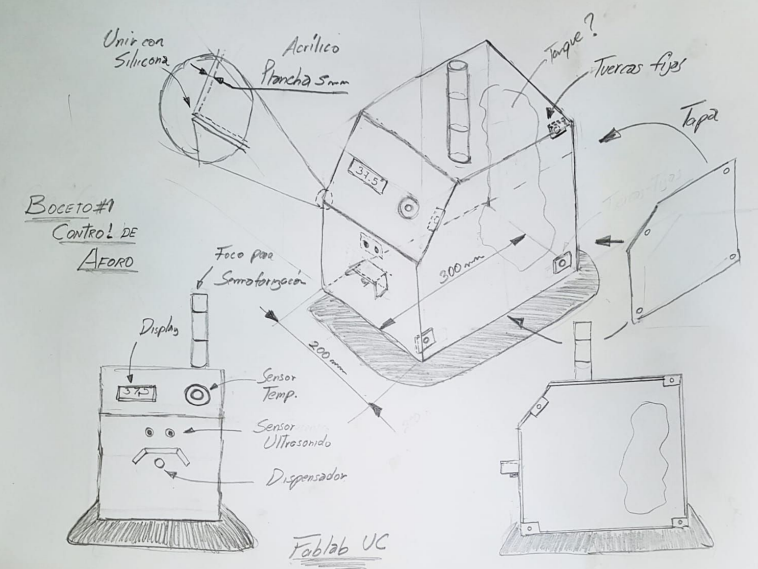 Unir con
Silicona
Acrílico
Plancha 5mm
Tanque?
Tuercas fijas
Tapa
37.5°
BOCETO #1
CONTROL DE
AFORO
Foco para
Semaforización
300mm
200mm
Display
37.5
Sensor
Temp.
Sensor
Ultrasonido
Dispensador
Fablab UC